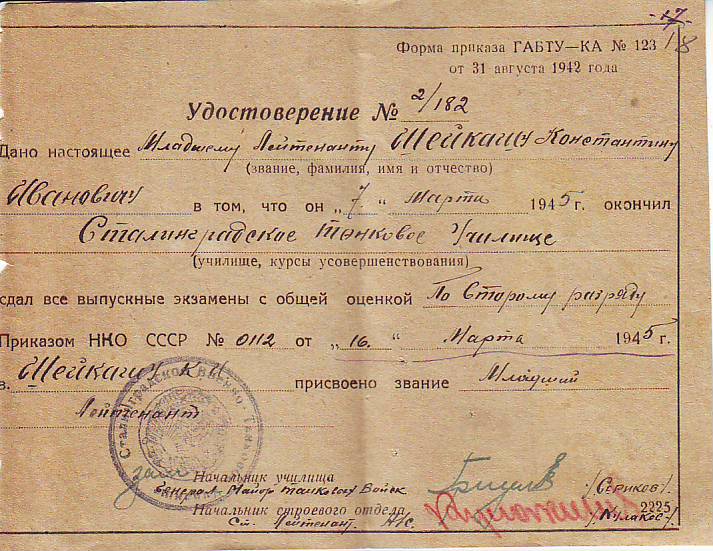 17
18
Форма приказа ГАБТУ—КА № 123
от 31 августа 1942 года
Удостоверение № 2/182
Дано настоящее Младшему Лейтенанту Шейкашу Константину
(звание, фамилия, имя и отчество)
Ивановичу в том, что он „7" Марта 1945 г. окончил
Сталинградское Танковое Училище
(училище, курсы усовершенствования)
сдал все выпускные экзамены с общей оценкой По Второму разряду
Приказом НКО СССР № 0112 от „16." Марта 1945 г.
в. Шейкашу К.И присвоено звание Младший
Лейтенант
Сталинградское Военно-Танковое
Начальник училища
Генерал Майор танковых Войск /Сериков/.
Начальник строевого отдела 2225
Ст. Лейтенант А/С. /Кулаков/.